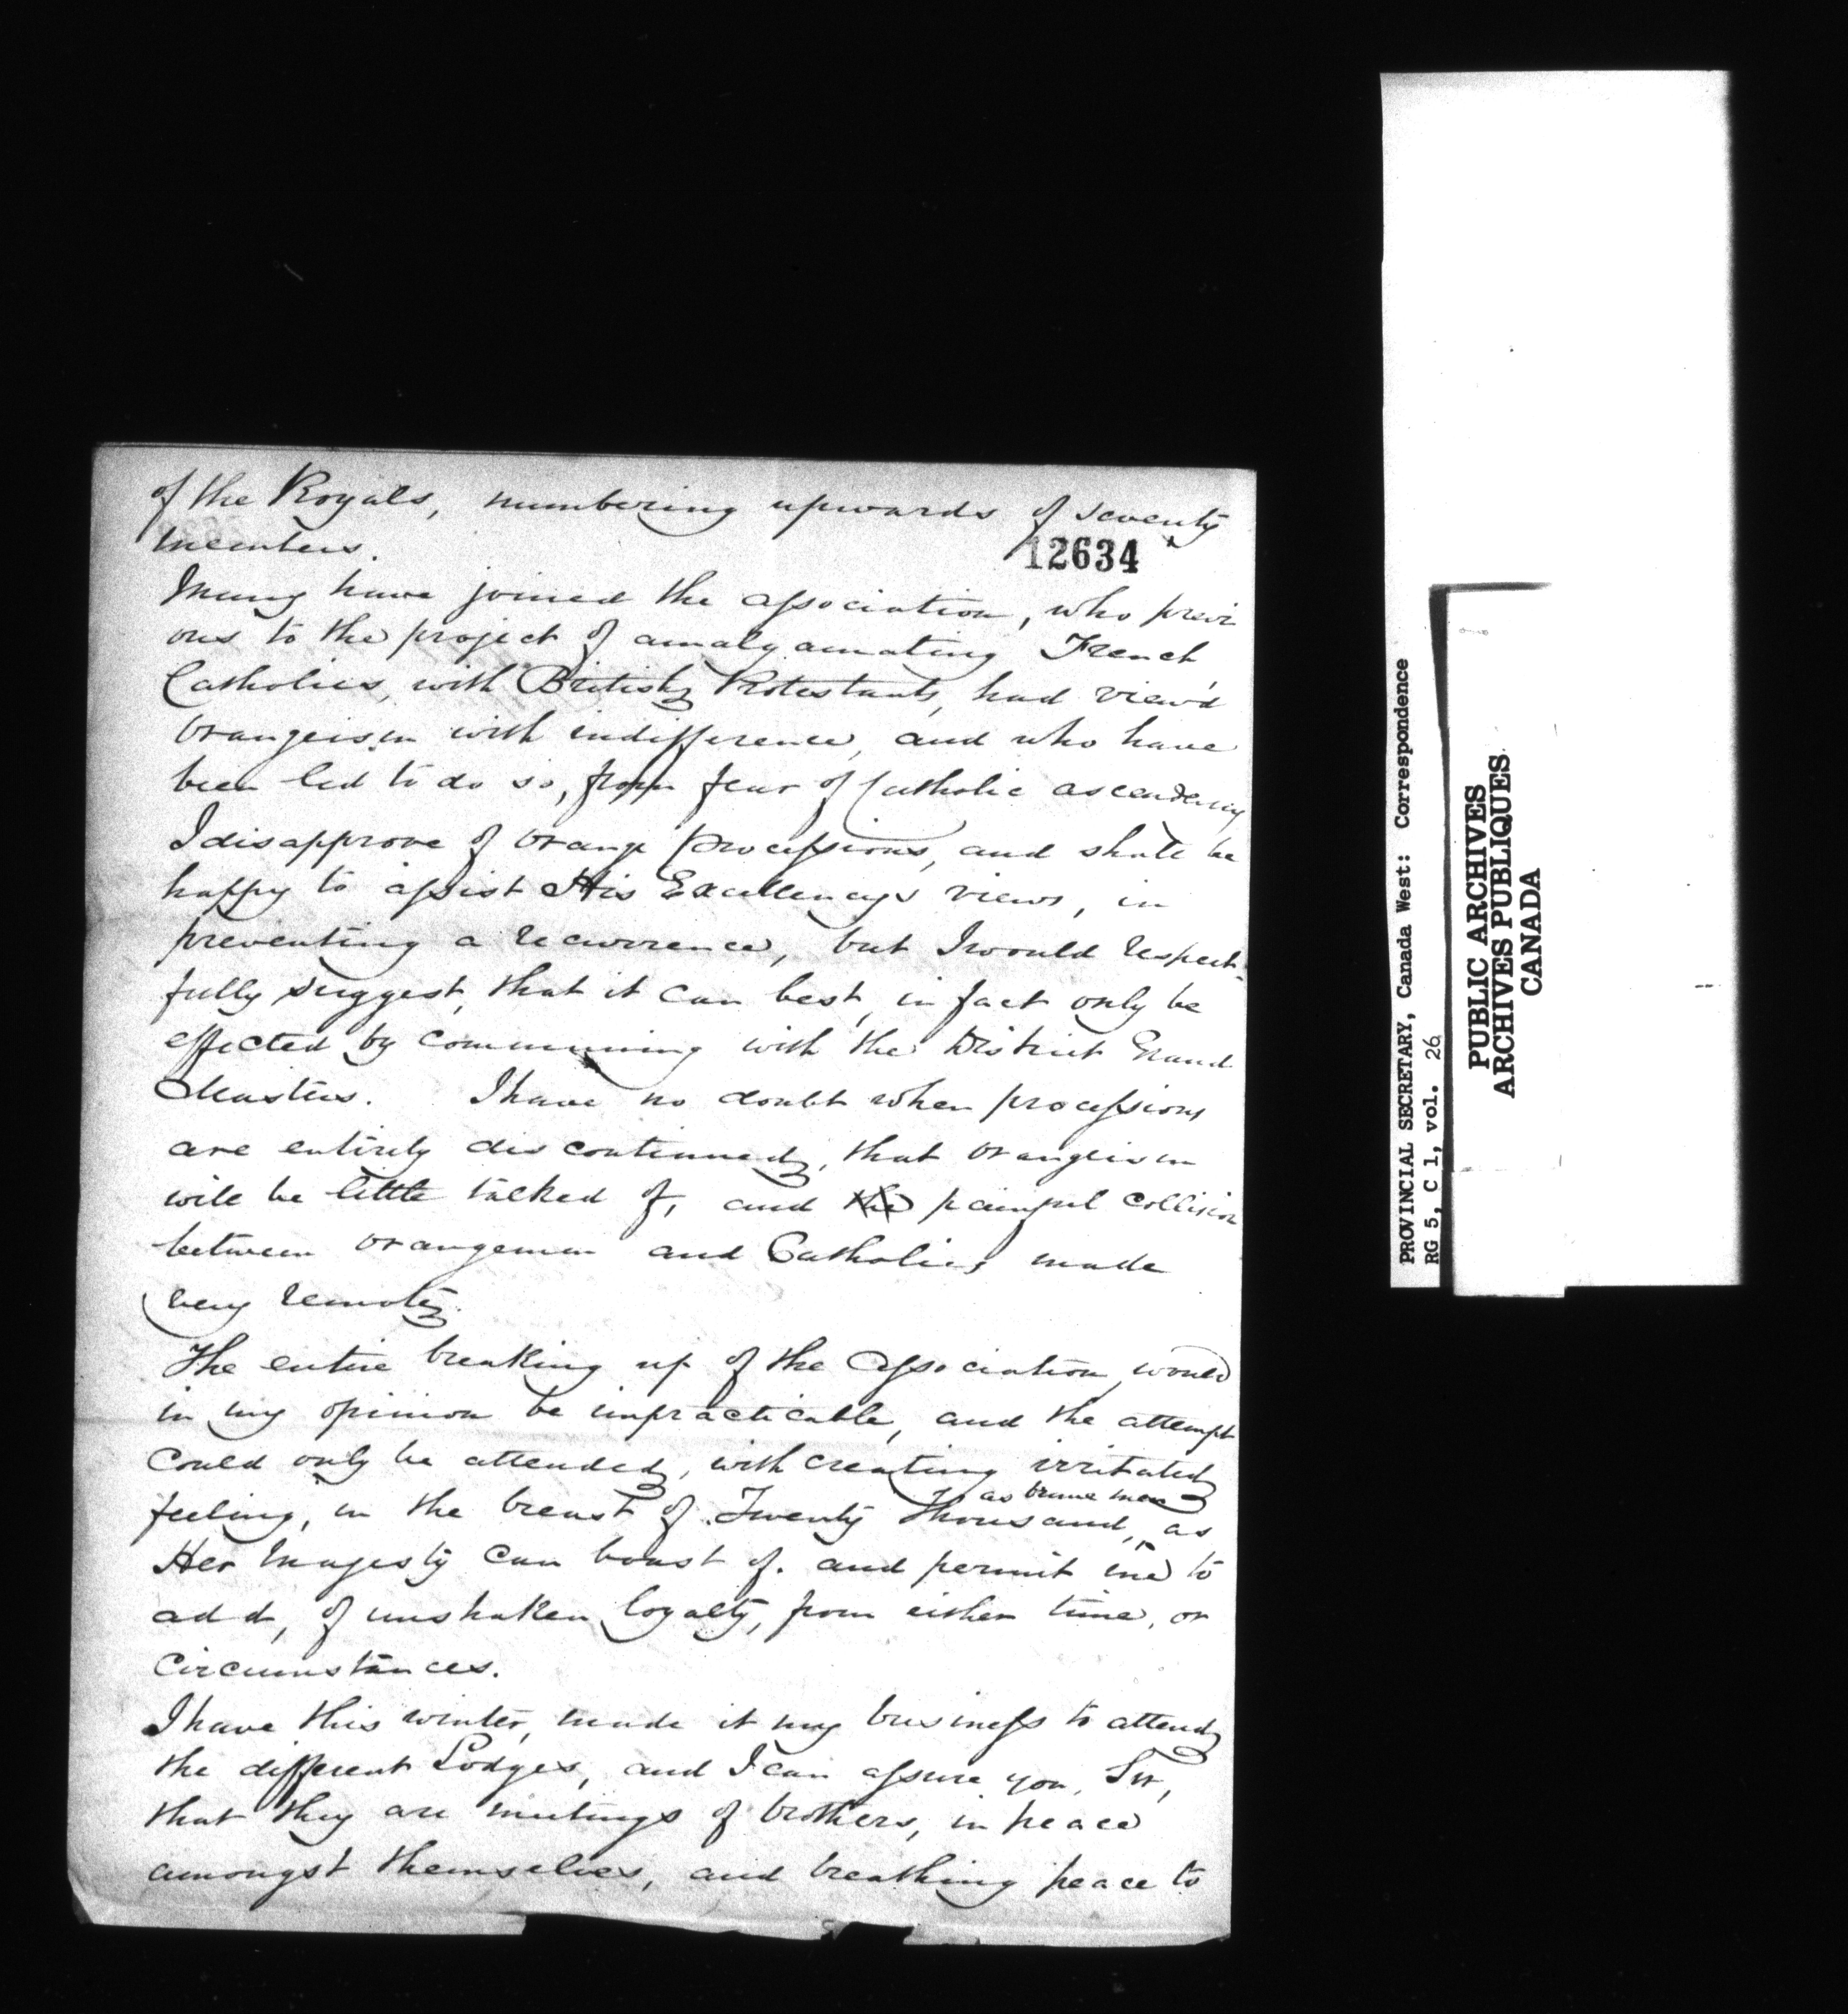 of the Royals, numbering upwards of seventy
members.
12634
Many have joined the association, who previ
ous to the project of amalgamating French
Catholics, with British Protestants, had view'd
Orangeism with indifference, and who have
been led to do so, from fear of Catholic ascendency
I disapprove of Orange processions, and shall be
happy to assist His Excellencys views, in
preventing a recurrence, but I would respect-
fully suggest, that it can best, in fact only be
effected by communing with the District Grand
Masters. I have no doubt when processions
are entirely discontinued, that Orangeism
will be little talked of, and the painful collision
between Orangemen and Catholics made
very remote.
The entire breaking up of the Association, would
in my opinion be impracticable, and the attempt
could only be attended, with creating irritated
feeling, in the breast of Twenty Thousand, as brave men as
Her Majesty can boast of. and permit me to
add, of unshaken loyalty, from either time, or
circumstances.
I have this winter, made it my business to attend
the different Lodges, and I can assure you, Sir,
that they are meetings of brothers, in peace
amongst themselves, and breathing peace to
PROVINCIAL SECRETARY, Canada West: Correspondence
RG 5, C 1, vol. 26
PUBLIC ARCHIVES
ARCHIVES PUBLIQUES
CANADA